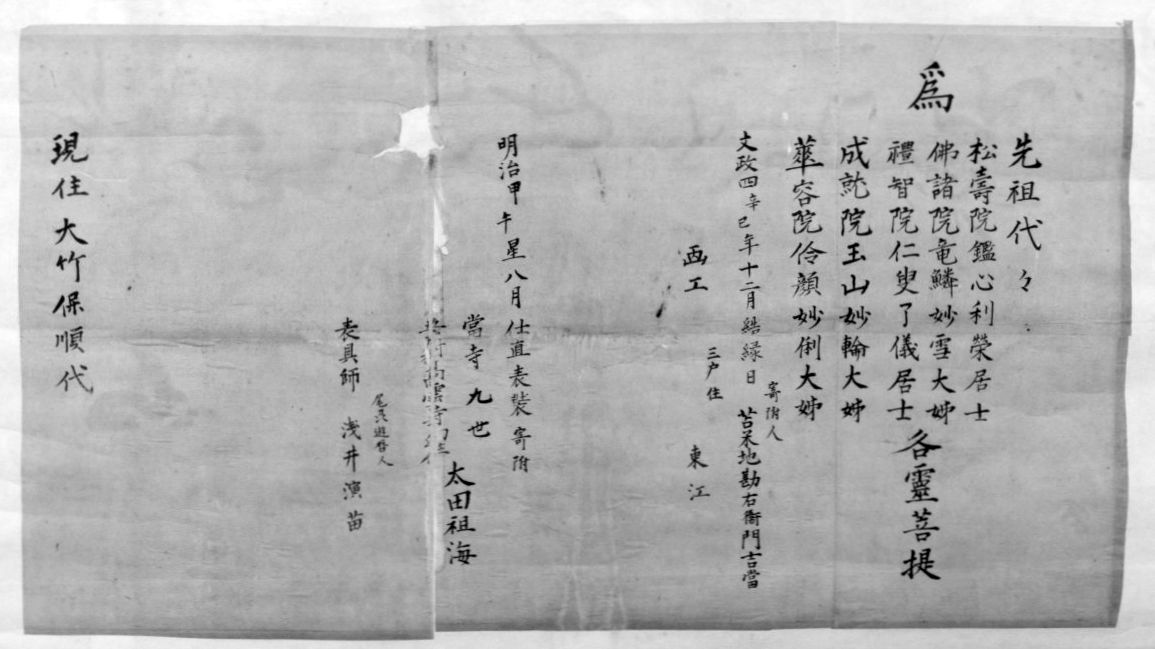 為
先祖代々
松壽院鑑心利榮居士
佛諸院竜鱗妙雪大姉
禮智院仁叟了儀居士
成就院玉山妙輪大姉
華容院伶顔妙俐大姉
各靈菩提
文政四辛巳年十二月結縁日
寄附人
苫米地勘右衛門吉當
画工
三戸住
東江
明治甲午星八月仕直表装寄附
當寺九世
太田祖海
尾張遊香人
表具師 浅井演苗
現住大竹保順代